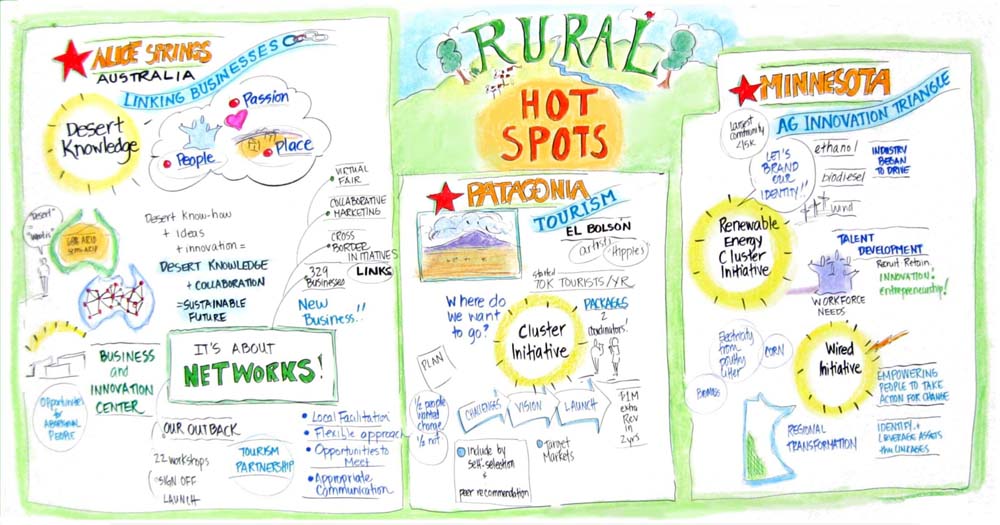 RURAL
HOT
SPOTS
ALICE SPRINGS
AUSTRALIA
LINKING BUSINESSES
Desert
Knowledge
Passion
People
Place
VIRTUAL
FAIR
COLLABORATIVE
MARKETING
CROSS
BORDER
INITIATIVES
LINKS
329
Businesses
New
Business!!
"Desert"
=
Desert Know-how
+ ideas
+ innovation =
DESERT KNOWLEDGE
+ COLLABORATION
= SUSTAINABLE
FUTURE
ARID
SEMI-ARID
BUSINESS
and
INNOVATION
CENTER
Opportunities
for
ABORIGINAL
PEOPLE
IT'S ABOUT
NETWORKS!
OUR OUTBACK
22 workshops
SIGN OFF
LAUNCH
TOURISM
PARTNERSHIP
• Local Facilitation
• Flexible approach
• Opportunities to
Meet
• Appropriate
Communication
PATAGONIA
TOURISM
EL BOLSÓN
artists
Hippies
started
70K TOURISTS/YR
Where do
we want
to go?
Cluster
Initiative
PACKAGES
2
coordinators!
PLAN
½ people
wanted
change
½ not
CHALLENGES
VISION
LAUNCH
1M
extra
Rev
in
2 yrs
include by
self-selection
&
peer recommendation
Target
Markets
MINNESOTA
AG INNOVATION TRIANGLE
Largest
community
45K
LET'S
BRAND
OUR
IDENTITY!
ethanol
biodiesel
wind
INDUSTRY
BEGAN
TO DRIVE
Renewable
Energy
Cluster
Initiative
TALENT
DEVELOPMENT
Recruit Retain
INNOVATION!
entrepreneurship!
WORKFORCE
NEEDS
Electricity
from
poultry
litter
CORN
BIOMASS
Wired
Initiative
EMPOWERING
PEOPLE TO TAKE
ACTION FOR CHANGE
REGIONAL
TRANSFORMATION
IDENTIFY +
LEVERAGE ASSETS
thru LINKAGES